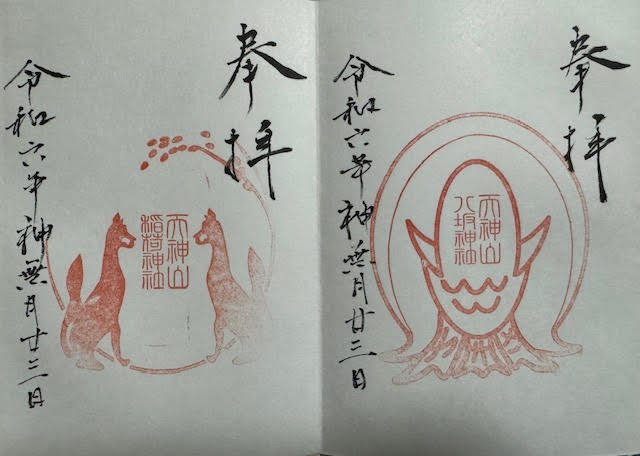 奉拝
天神山
八坂神社
令和六年神無月廿三日
奉拝
天神山
稲荷神社
令和六年神無月廿三日